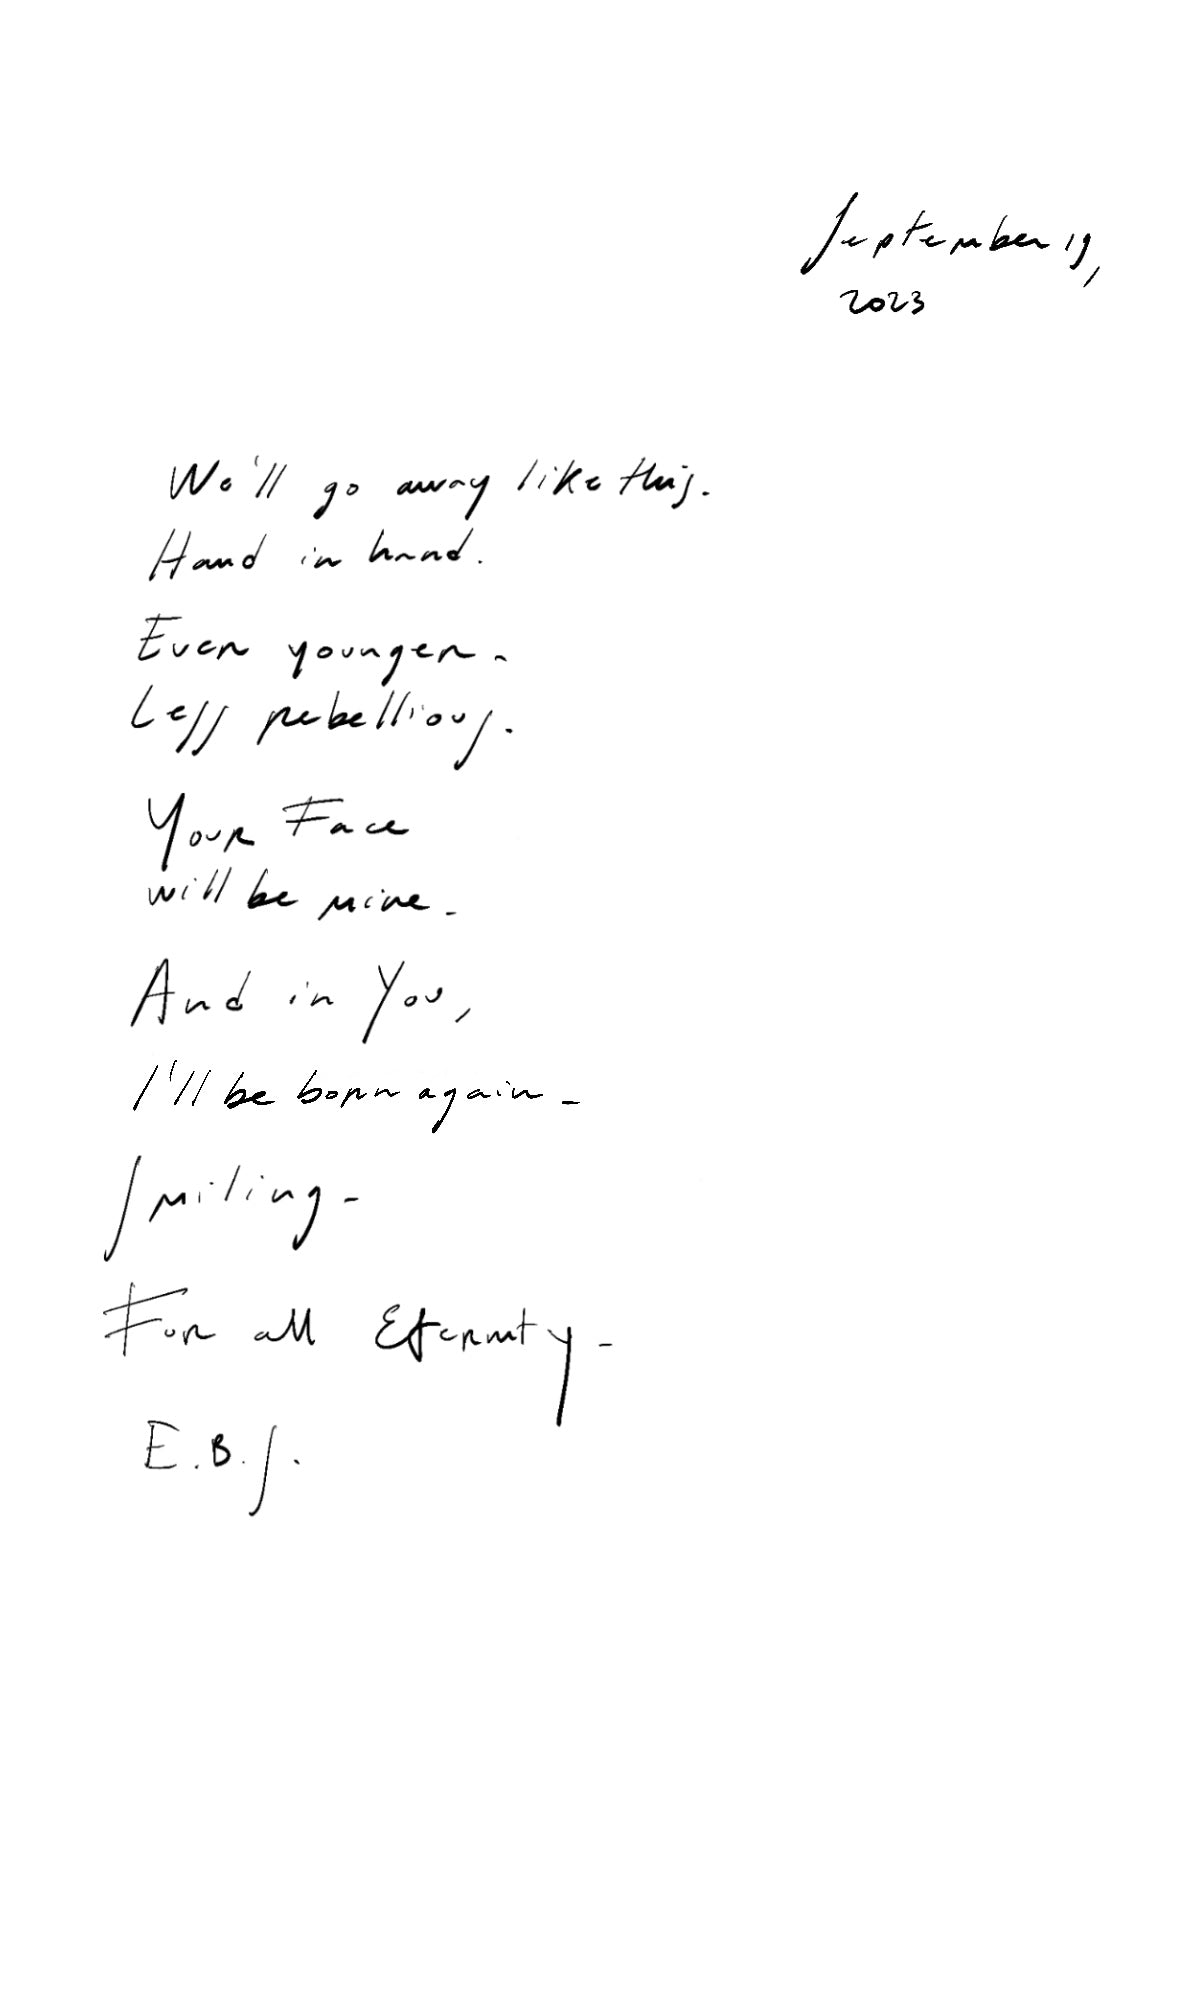 September 19,
2023
We'll go away like this.
Hand in hand.
Even younger.
Less rebellious.
Your Face
will be mine.
And in You,
I'll be born again.
Smiling.
For all Eternity.
E.B.S.